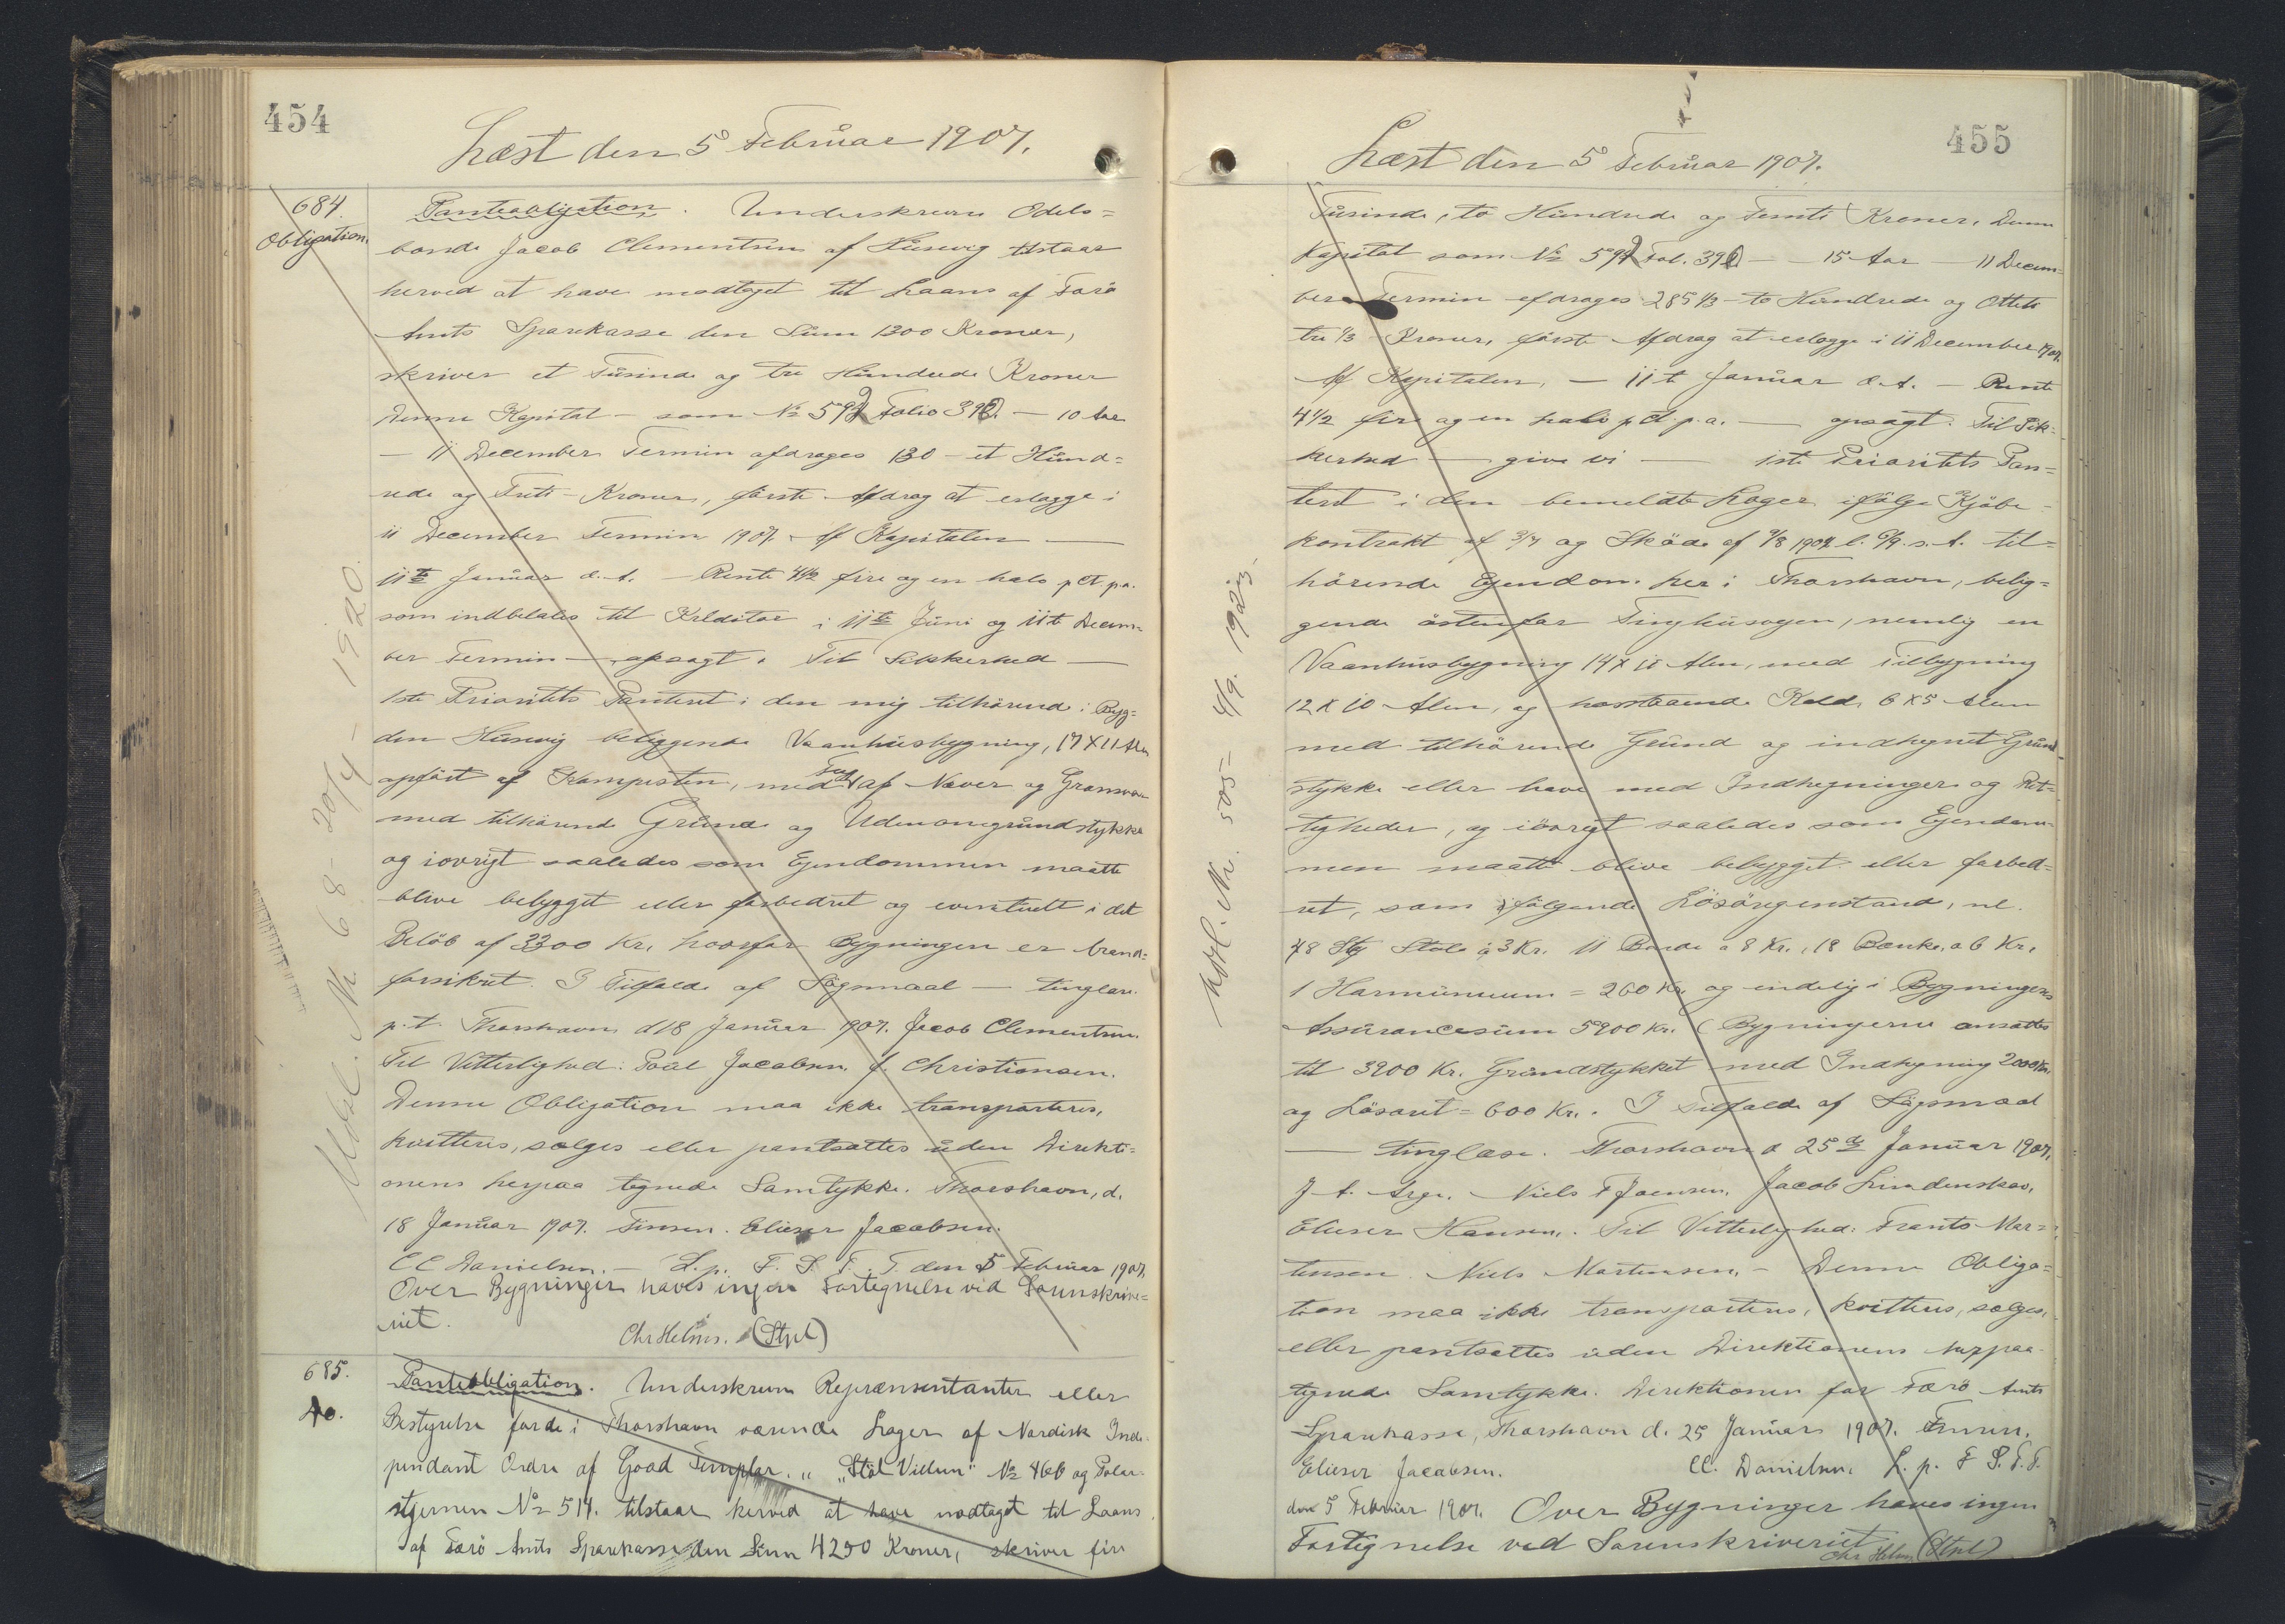 454
Læst den 5 Februar 1907.
684.
Obligation.
Panteobligation. Underskrevne Odels=
bonde Jacob Clementsen af Husevig tilstaar
herved at have modtaget til Laans af Færö
Amts Sparekasse den Sum 1300 Kroner,
skriver et Tusinde og tre Hundrede Kroner
Denne Kapital – som № 592 Folio 392. – 10 Aar
– 11 December Termin afdrages 130 – et Hund=
rede og Treti – Kroner, förste Afdrag at erlægge i
11 December Termin 1907. Af Kapitalen —
11te Januar d. A. – Rente 4½ fire og en halv pCt p.a.
som indbetales til Kreditor i 11te Juni og 11te Decem=
ber Termin — opsagt. Til Sikkerhed —
1ste Prioritets Panteret i den mig tilhörende i Byg=
den Husevig beliggende Vaanhusbygning, 17 X 11 Alen
opfört af Kampesten, med Tag af Næver og Grønsvær
med tilhörende Grund og Udenomsgrundstykke
og iövrigt saaledes som Ejendommen maatte
blive bebygget eller forbedret og eventuelt i det
Belöb af 3300 Kr. hvorfor Bygningen er brand=
forsikret. I Tilfælde af Sögsmaal — tinglæse.
p.t. Thorshavn d 18 Januar 1907. Jacob Clementsen.
Til Vitterlighed: Poul Jacobsen. J. Christiansen.
Denne Obligation maa ikke transporteres,
kvitteres, sælges eller pantsættes uden Direkti=
onens herpaa tegnede Samtykke. Thorshavn, d.
18 Januar 1907. Finsen. Elieser Jacobsen.
CC Danielsen. – L. p. F. S. T. T. den 5 Februar 1907,
Over Bygninger haves ingen Fortegnelse ved Sorenskrive=
riet.
Chr Helms. (Stpl)
685.
Do.
Panteobligation. Underskrevne Repræsentanter eller
Bestyrelse for de i Thorshavn værende Loger af Nordisk Inde=
pendant Ordre af Good Templar. „ „Stöt Villum" № 466 og Polar=
stjernen № 514. tilstaar herved at have modtaget til Laans
af Færö Amts Sparekasse den Sum 4250 Kroner, skriver fire
Afsl. № 68 – 20/4 – 1920.
455
Læst den 5 Februar 1907.
Tusinde, to Hundrede og Femti Kroner, Denne
Kapital som № 592 Fol. 392 – – 15 Aar – 11 Decem=
ber Termin afdrages 285 1/3 – to Hundrede og Otteti
tre 1/3 Kroner, förste Afdrag at erlægge i 11 December 1907.
Af Kapitalen, – 11te Januar d. A. – Rente
4½ fire og en halv p Ct p.a. — opsagt. Til Sik=
kerhed — give vi — 1ste Prioritets Pan=
teret i den bemeldte Loger ifölge Kjöbe=
kontrakt af 3/7 og Sköde af 9/8 1904 l. 6/9. s. A. til=
hörende Ejendom her i Thorshavn, belig=
gende östenfor Tinghusvejen, nemlig en
Vaanhusbygning 14 X 11 Alen, med Tilbygning
12 X 10 Alen, og hosstaaende Kold. 6 X 5 Alen
med tilhörende Grund og indhegnet Grund=
stykke eller have med Indhegninger og Ret=
tigheder, og iövrigt saaledes som Ejendom=
men maatte blive bebygget eller forbed=
ret, som ifölgende Lösöregenstand, nl.
48 Stk Stole à 3 Kr. 11 Borde a 8 Kr., 18 Bænke, a 6 Kr.
1 Harmunuum = 260 Kr. og endelig i Bygningens
Assurancesum 5900 Kr. (Bygningerne ansættes
til 3900 Kr. Grundstykket med Indhegning 2000 Kr.
og Lösöret = 600 Kr. I Tilfælde af Sögsmaal
— tinglæse. Thorshavn d 25de Januar 1907.
J A. Arge. Niels F Joensen. Jacob Lindenskov.
Elieser Hansen. Til Vitterlighed: Frants Mar=
tensen Niels Martensen, – Denne Obliga=
tion maa ikke transporteres, kvitteres, sælges,
eller pantsættes uden Direktionens herpaa
tegnede Samtykke. Direktionen for Færö Amts
Sparekasse, Thorshavn d. 25 Januar 1907. Finsen.
Elieser Jacobsen. CC. Danielsen. L. p. F S. T. T.
den 5 Februar 1907. Over Bygninger haves ingen
Fortegnelse ved Sorenskriveriet
Chr Helms (Stpl)
Afsl. Nr. 505 – 4/9. 1923.